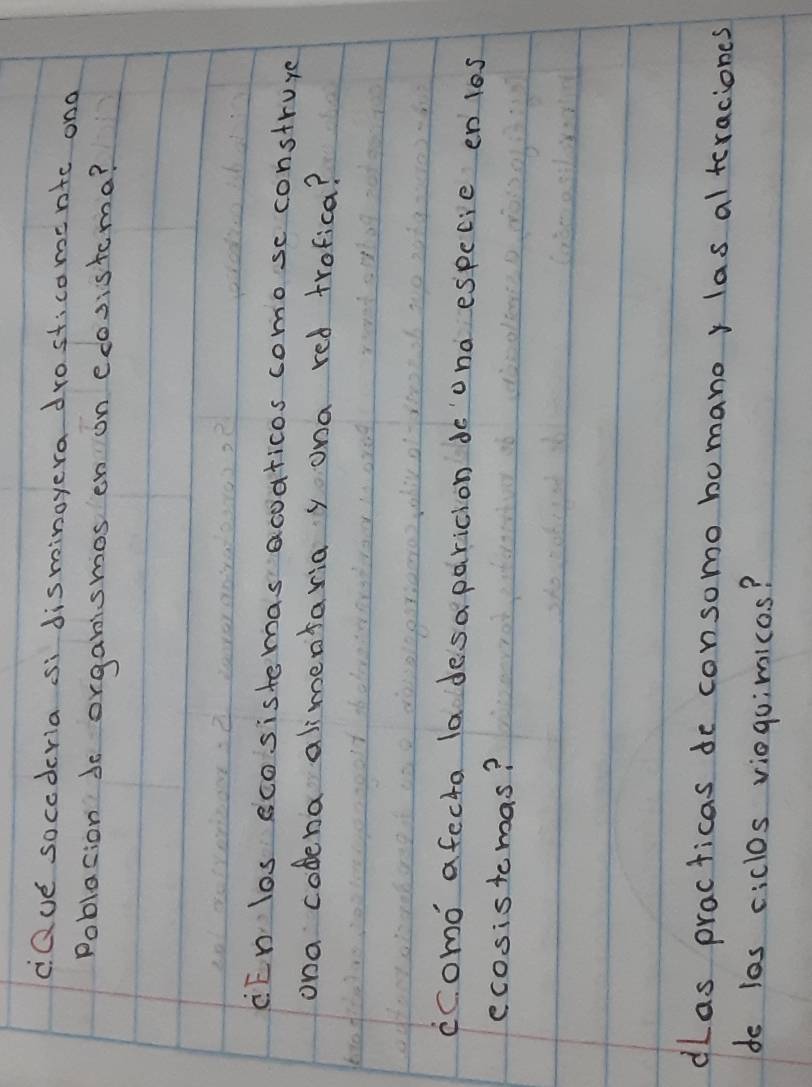 ¿Qué socederia si disminoyera drosticamente ona
Poblacion de organismos en un ecosistema?
¿En los ecosistemas acuaticos como se construye
ona cadena alimentaria y ona red trofica?
¿Comó afecta la desaparicion de una especie en los
ecosistemas?
¿Las practicas de consomo homano y las alteraciones
de los ciclos vioquimicos?